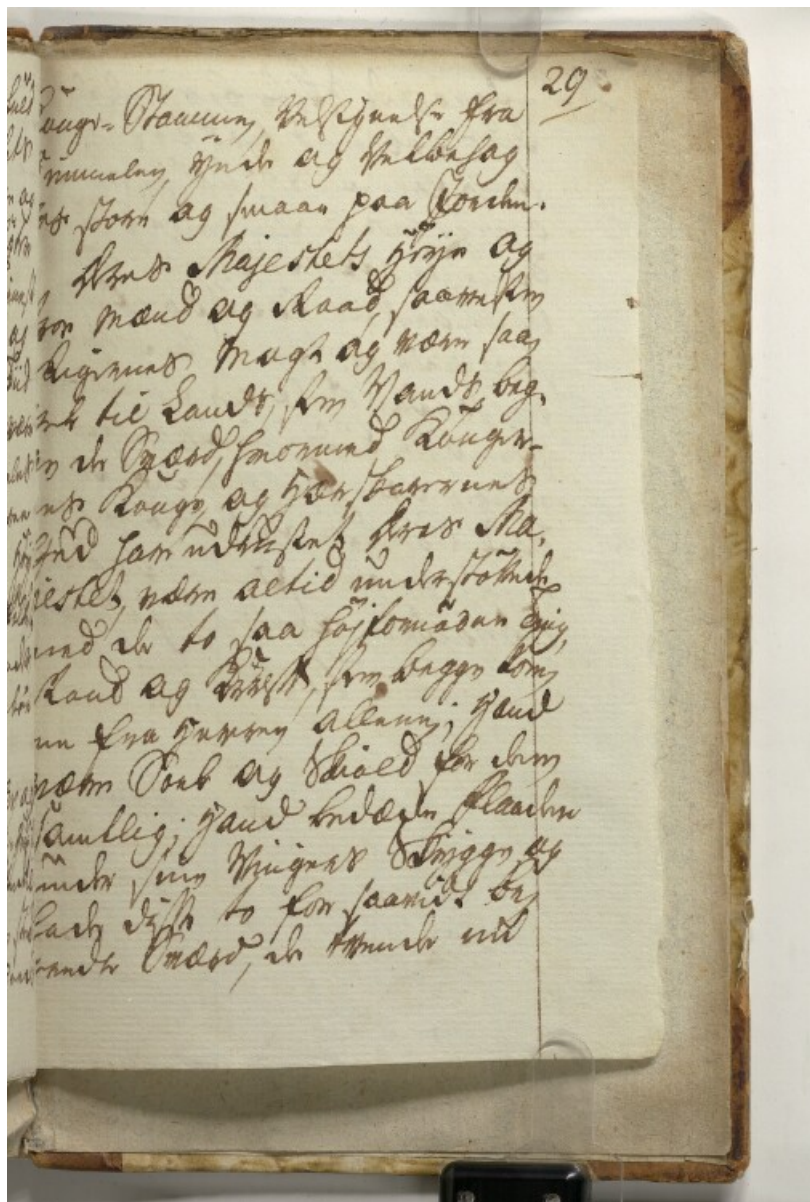 29
Konge-Stammen, Velsignelse fra
Himmelen, Ynde og Velbehag
hos store og smaae paa Jorden.
Deres Majestets Høye og
troe Mænd og Raad, saavelsom
Rigernes Magt og være saa
til Lands, som Vands, beg-
de Sværd, hvormed Konger-
nes Konge, og Hærskarernes
Gud har udrustet Deres Ma-
jestet, være altid understøttede
med de to saa høyfornødne Ting,
Raad og Krafft, som begge kom-
me fra Herren alleene; Hand
være Soel og Skiold for dem
samtlig; Hand bedække Flaaden
under sine Vingers Skygge, og
lade disse to for saavidt be-
rørte Sværd, de tvende